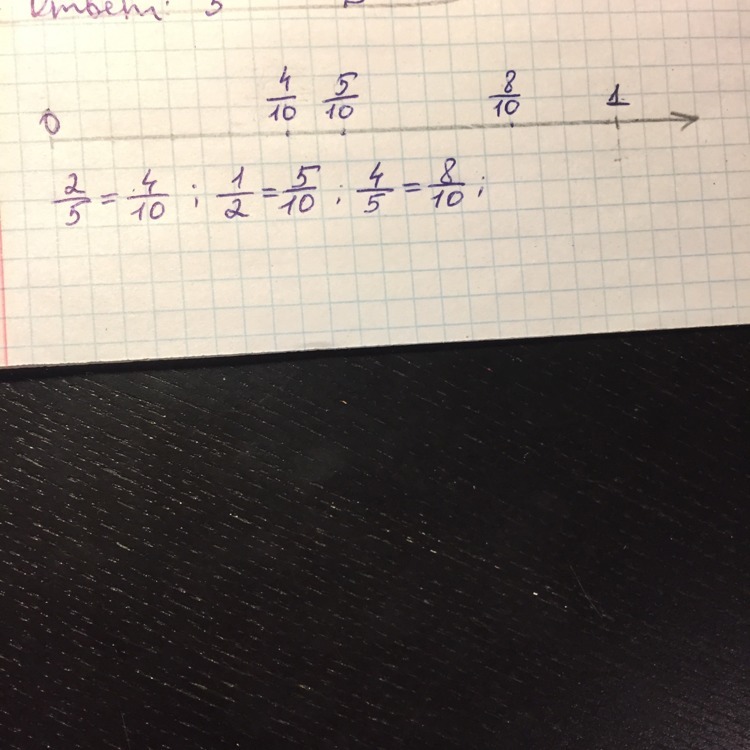 Ответ: 5
0 4/10 5/10 8/10 1
2/5 = 4/10 ; 1/2 = 5/10 ; 4/5 = 8/10 ;